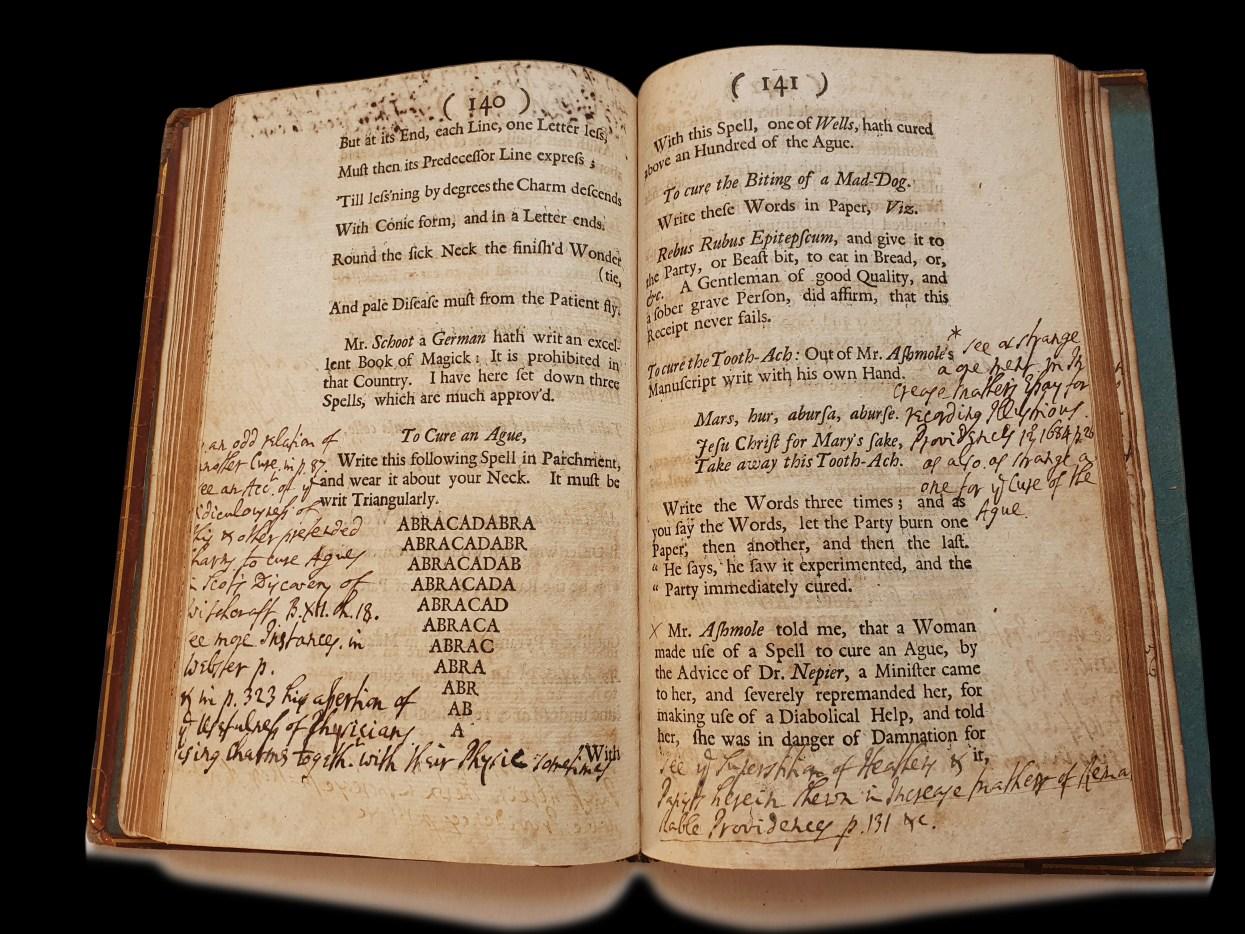 ( 140 )
But at its End, each Line, one Letter leſs,
Muſt then its Predeceſſor Line expreſs ;
'Till leſs'ning by degrees the Charm deſcends
With Conic form, and in a Letter ends.
Round the ſick Neck the finiſh'd Wonder
(tie,
And pale Diſeaſe muſt from the Patient fly.
Mr. Schoot a German hath writ an excel-
lent Book of Magick : It is prohibited in
that Country. I have here ſet down three
Spells, which are much approv'd.
To Cure an Ague,
Write this following Spell in Parchment,
and wear it about your Neck. It muſt be
writ Triangularly.
ABRACADABRA
ABRACADABR
ABRACADAB
ABRACADA
ABRACAD
ABRACA
ABRAC
ABRA
ABR
AB
A
With
an odd relation of
another Cure, in p. 87.
see an Acct. of ye
ridiculousness of
this & other pretended
charms to cure Agues
in Scots Discovery of
witchcraft B.XII. ch. 18.
see more Instances. in
Webster p.
& in p. 323 his assertion of
ye usefulness of Physicians
using Charms togeth. with their Physic sometimes
( 141 )
With this Spell, one of Wells, hath cured
above an Hundred of the Ague.
To cure the Biting of a Mad-Dog.
Write theſe Words in Paper, Viz.
Rebus Rubus Epitepſcum, and give it to
the Party, or Beaſt bit, to eat in Bread, or,
&c. A Gentleman of good Quality, and
a ſober grave Perſon, did affirm, that this
Receipt never fails.
To cure the Tooth-Ach : Out of Mr. Aſhmole's
Manuſcript writ with his own Hand.
Mars, hur, aburſa, aburſe.
Jeſu Chriſt for Mary's ſake,
Take away this Tooth-Ach.
Write the Words three times ; and as
you ſay the Words, let the Party burn one
Paper, then another, and then the laſt.
“ He ſays, he ſaw it experimented, and the
“ Party immediately cured.
X Mr. Aſhmole told me, that a Woman
made uſe of a Spell to cure an Ague, by
the Advice of Dr. Nepier, a Miniſter came
to her, and ſeverely repremanded her, for
making uſe of a Diabolical Help, and told
her, ſhe was in danger of Damnation for
it,
* see as strange
a one in
crease mathers Essay for
recording Illustrious
Providences 12 1684 p.
as also as strange a
one for ye Cure of the
Ague.
see ye Superstition of Heathens &
Papists herein shewn in Increase mathers of Rema
kable Providences p. 131 &c.